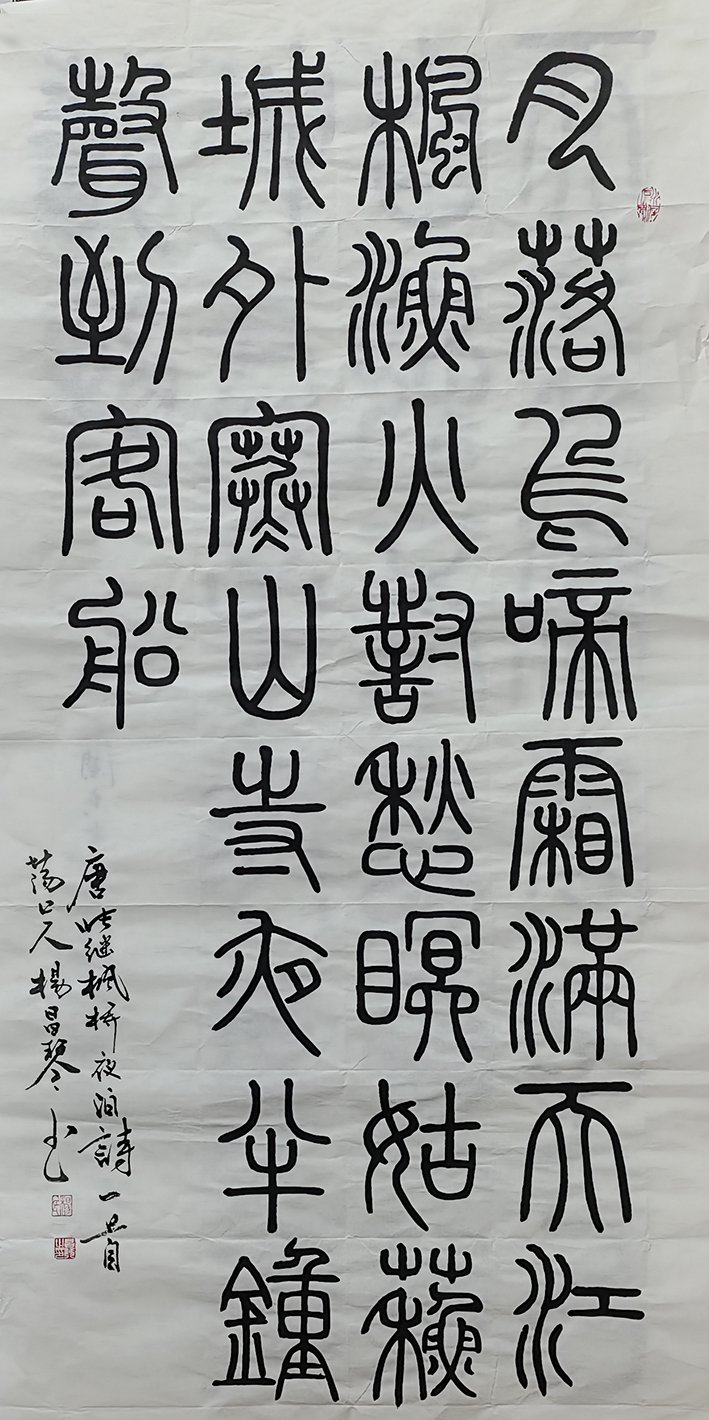 月落烏啼霜滿天江
楓漁火對愁瞑姑蘇
城外寒山寺夜半鐘
聲到客船
唐張继楓桥夜泊詩一首
荡口人楊昌琴书